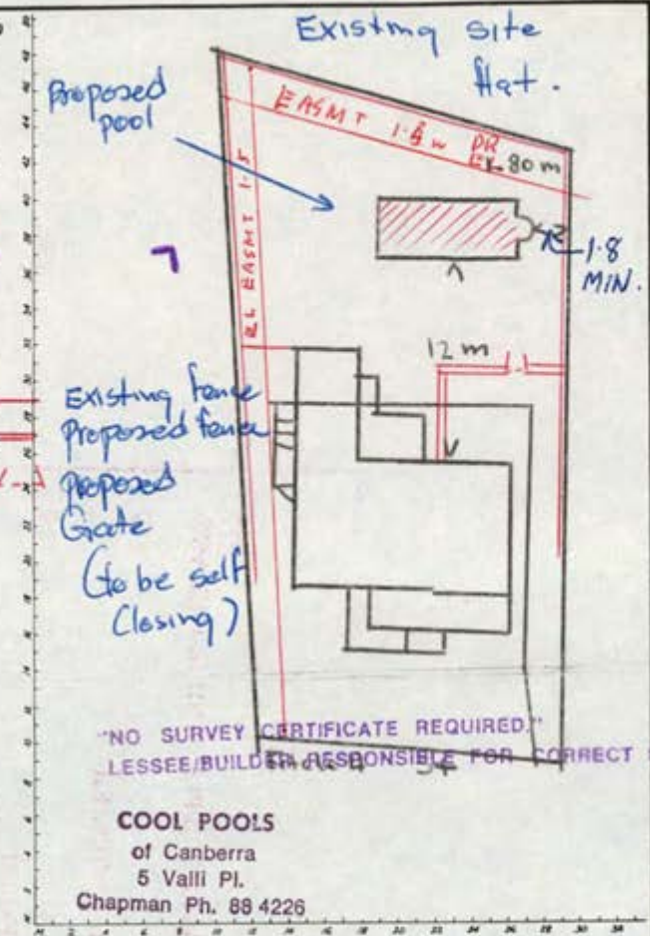 Existing site
flat.
Proposed
pool
EASMT 1.5 w DR
EASMT 1.5
80 m
1.8
MIN.
12 m
Existing fence
Proposed fence
Proposed
Gate
(to be self
Closing)
"NO SURVEY CERTIFICATE REQUIRED."
LESSEE/BUILDER RESPONSIBLE FOR CORRECT
COOL POOLS
of Canberra
5 Valli Pl.
Chapman Ph. 88 4226